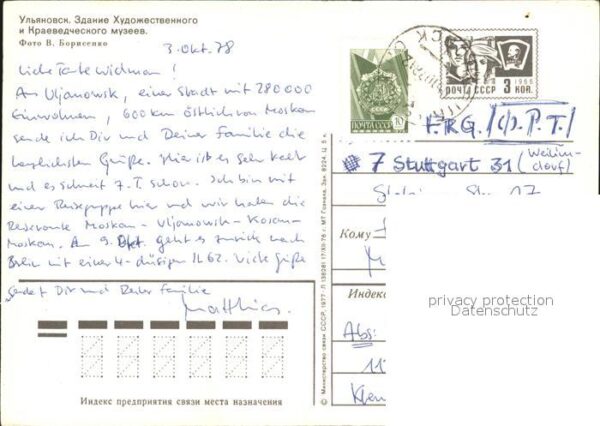 Ульяновск. Здание Художественного
и Краеведческого музеев.
Фото В. Борисенко
3. Okt. 78
Liebe Tante Widman!
Aus Uljanowsk, einer Stadt mit 280000
Einwohnern, 600 km östlich von Moskau
sende ich Dir und Deiner Familie die
herzlichsten Grüße. Hier ist es sehr kalt
und es schneit z. T. schon. Ich bin mit
einer Reisegruppe hier und wir haben die
Reiseroute Moskau - Uljanowsk - Kasan -
Moskau. Am 9. Okt. geht es zurück nach
Berlin mit einer 4-düsigen IL 62. Viele Grüße
sendet Dir und Deiner Familie
Matthias.
Индекс предприятия связи места назначения
© Министерство связи СССР, 1977
ПОЧТА СССР
10
ПОЧТА СССР
1966
3 КОП.
F.R.G.
7 Stuttgart 31 (Weilim-
dorf)
17
Кому
Индекс
privacy protection
Datenschutz
Abs: